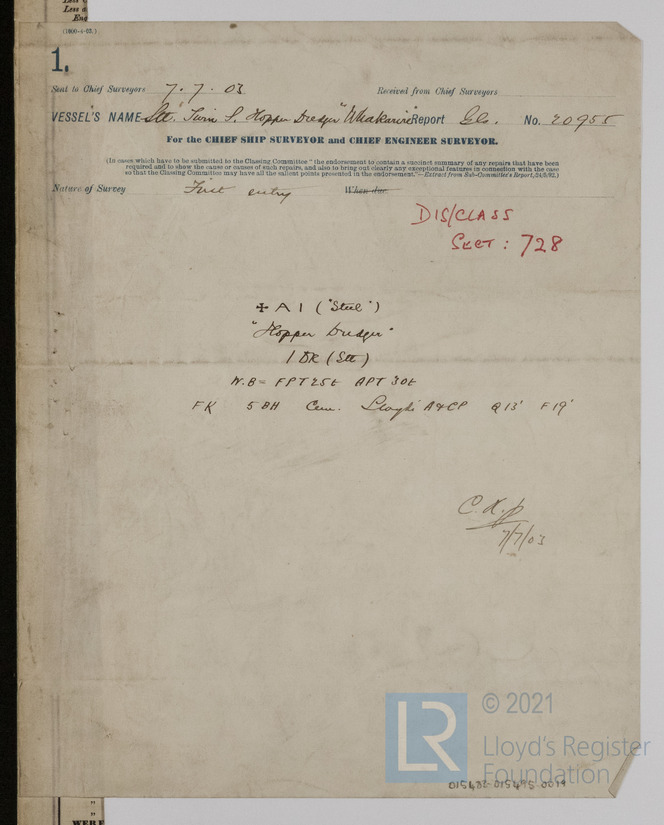 Less a
Eng
(1000-4-03.)
1.
Sent to Chief Surveyors 7.7.03. Received from Chief Surveyors
VESSEL'S NAME Stl. Twin S. Hopper Dredger "Whakarire" Report Gls. No. 20955
For the CHIEF SHIP SURVEYOR and CHIEF ENGINEER SURVEYOR.
(In cases which have to be submitted to the Classing Committee "the endorsement to contain a succinct summary of any repairs that have been
required and to show the cause or causes of such repairs, and also to bring out clearly any exceptional features in connection with the case
so that the Classing Committee may have all the salient points presented in the endorsement."—Extract from Sub-Committee's Report,
Nature of Survey First entry When due
DIS/CLASS
SECT: 728
✠ A 1 ("Steel")
"Hopper Dredger"
1 DK (Stl)
W.B = FPT 25t APT 30t
FK 5 BH Cem. Lloyd's A&CP Q 13' F 19'
7/7/03
LR © 2021
Lloyd's Register
Foundation
015482-015495-0019
WERE